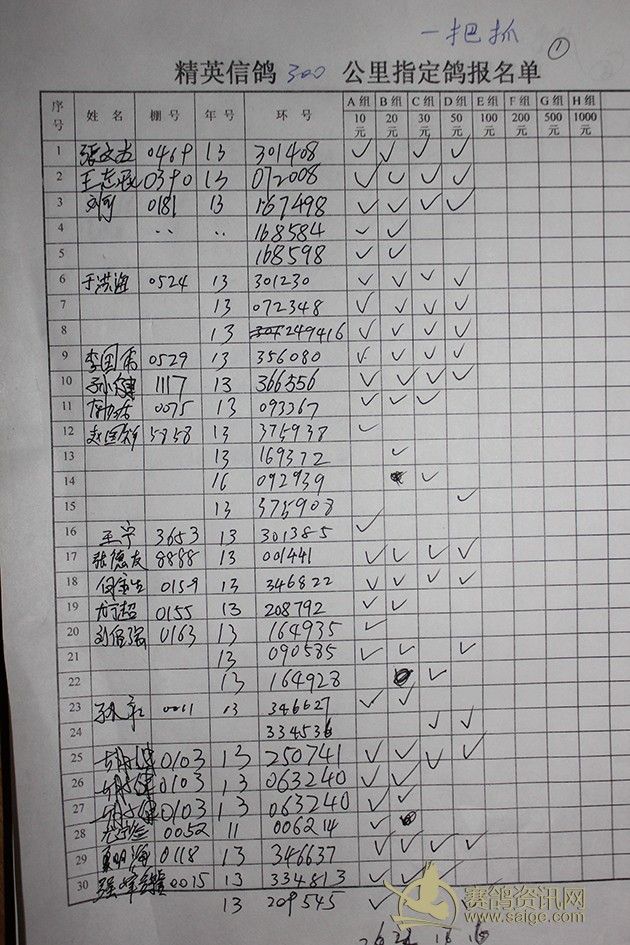 一把抓 ①
精英信鸽 300 公里指定鸽报名单
序号 姓名 棚号 年号 环号 A组 10元 B组 20元 C组 30元 D组 50元 E组 100元 F组 200元 G组 500元 H组 1000元
1 0469 13 301408 ✓ ✓ ✓ ✓
2 0390 13 072008 ✓ ✓ ✓ ✓
3 0181 13 167498 ✓ ✓ ✓ ✓
4 ·· ·· 168584 ✓ ✓
5 168598 ✓ ✓
6 于洪海 0524 13 301230 ✓ ✓ ✓ ✓
7 13 072348 ✓ ✓ ✓ ✓
8 13 249416 ✓ ✓ ✓ ✓
9 李国伟 0529 13 356080 ✓ ✓ ✓ ✓
10 1117 13 366556 ✓ ✓ ✓ ✓
11 0075 13 093267 ✓ ✓ ✓
12 5858 13 375938 ✓
13 13 169372 ✓
14 16 092939 ✓
15 13 375908 ✓
16 王宇 3653 13 301385 ✓
17 张德友 8888 13 001441 ✓ ✓ ✓ ✓
18 0159 13 346822 ✓ ✓ ✓ ✓
19 0155 13 208792 ✓ ✓
20 0163 13 164935 ✓
21 13 090585 ✓ ✓ ✓
22 13 164928 ✓
23 0011 13 346627 ✓ ✓
24 334536 ✓ ✓
25 0103 13 250741 ✓ ✓ ✓ ✓
26 0103 13 063240 ✓ ✓
27 0103 13 063240 ✓ ✓
28 0052 11 006214 ✓
29 0118 13 346637 ✓ ✓ ✓ ✓
30 0015 13 334813 ✓ ✓ ✓
13 209545 ✓
赛鸽资讯网
www.saige.com